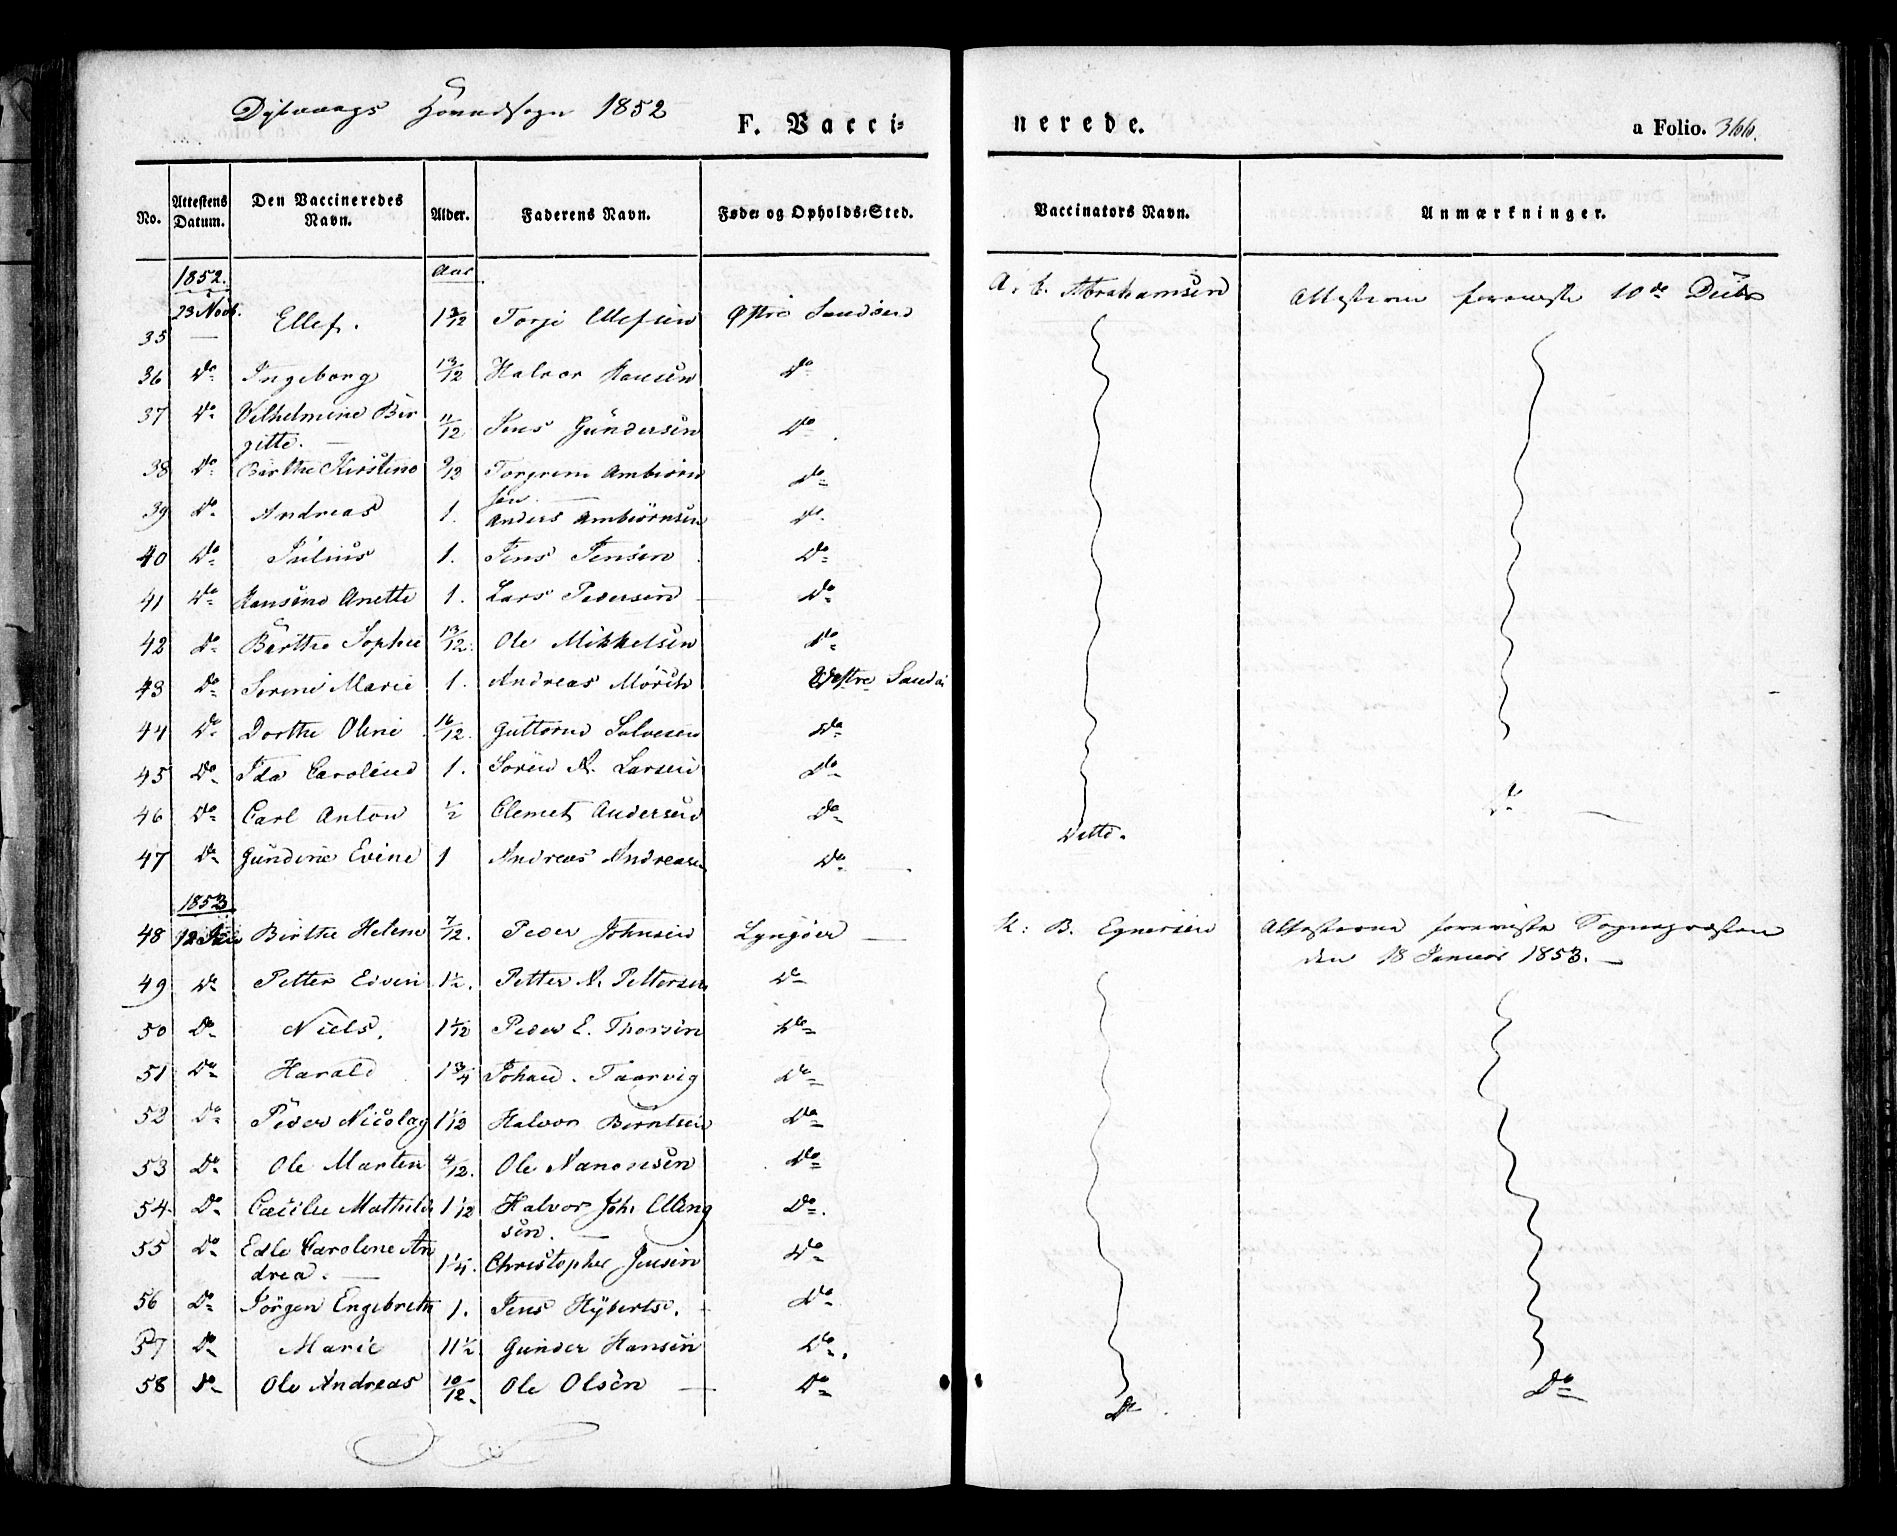 Dybvaags Hovedsogn 1852
F. Vacci-
nerede.
a Folio. 366.
No.
Attestens Datum.
Den Vaccineredes Navn.
Alder.
Faderens Navn.
Føde- og Opholds-Sted.
Vaccinators Navn.
Anmærkninger.
1852. Aar
35 23 Novb. Ellef. Torje Ellefsen Østre Sandøen A. E. Abrahamsen Attesterne foreviste 10de Decbr
36 Do Ingeborg 13/12 Halvor Hansen Do
37 Do Vilhelmine Bir
gitte. 11/12 Jens Gundersen Do
38 Do Birthe Kirstine 9/12 Torgrim Ambiørn
sen. Do
39 Do Andreas 1. Anders Ambiørnsen Do
40 Do Julius 1. Jens Jensen Do
41 Do Hansine Anette 1. Lars Pedersen Do
42 Do Birthe Sophie 13/12. Ole Mikkelsen Do
43 Do Serine Marie 1. Andreas Mörch Westre Sandø
44 Do Dorthe Oline 16/12. Guttorm Salvesen Do
45 Do Ida Caroline 1. Sören N. Larsen Do
46 Do Carl Anton 1/2 Clemet Andersen Do Do
47 Do Gundine Evine 1 Andreas Andreasen Do Ditto.
1853
48 12 Birthe Helene 7/12. Peder Johnsen Lyngøer K: B. Egnersen Attesterne foreviste Sognepræsten
den 18 Januar 1853.
49 Do Petter Edvin 1 1/2. Petter N. Pettersen Do
50 Do Niels. 1 1/12 Peder E. Thorsen Do
51 Do Harald 1 3/4 Johan Taarvig Do
52 Do Peder Nicolay 1 1/2 Halvor Berntsen Do
53 Do Ole Martin 4/12. Ole Nanonsen Do
54 Do Cæcilie Mathilde 1 1/12 Halvor Joh. Elling
sen. Do.
55 Do Edle Caroline An
drea. 1 1/4. Christopher Jensen Do
56 Do Jörgen Engebreth 1. Jens Hyberts. Do
57 Do Marie 11 1/2 Gunder Hansen Do.
58 Do Ole Andreas 10/12. Ole Olsen Do Do Do